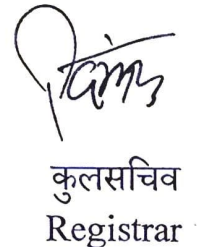 कुलसचिव
Registrar